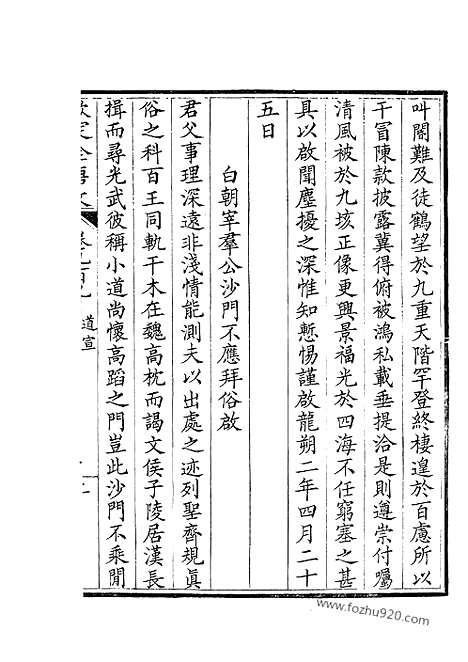 叫閽難及徒鶴望於九重天階罕登終棲遑於百慮所以
干冒陳款披露冀得俯被鴻私載垂提洽是則遵崇付囑
清風被於九垓正像更興景福光於四海不任窮塞之甚
具以啟聞塵擾之深惟知慙惕謹啟龍朔二年四月二十
五日
白朝宰羣公沙門不應拜俗啟
君父事理深遠非淺情能測夫以出處之迹列聖齊規眞
俗之科百王同軌干木在魏高枕而謁文侯子陵居漢長
揖而尋光武彼稱小道尚懷高蹈之門豈此沙門不乘閒
欽定全唐文
道宣
www.fozhu920.com